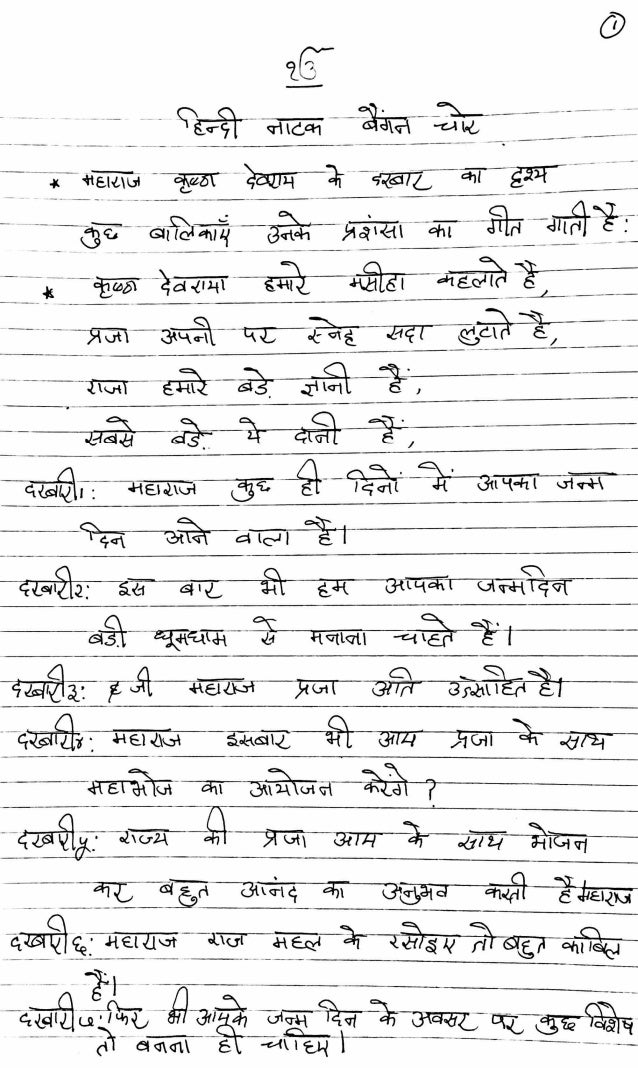 ①
ੴ
हिन्दी नाटक बैंगन चोर
* महाराज कृष्णा देवराय के दरबार का दृश्य
कुछ बालिकाएँ उनके प्रशंसा का गीत गाती हैं:
* कृष्णा देवराया हमारे मसीहा कहलाते हैं,
प्रजा अपनी पर स्नेह सदा लुटाते हैं,
राजा हमारे बडे़ ज्ञानी हैं,
सबसे बडे़ ये दानी हैं,
दरबारी१: महाराज कुछ ही दिनों में आपका जन्म
दिन आने वाला है।
दरबारी२: इस बार भी हम आपका जन्मदिन
बडी़ धूमधाम से मनाना चाहते हैं।
दरबारी३: जी महाराज प्रजा अति उत्साहित है।
दरबारी४: महाराज इसबार भी आप प्रजा के साथ
महाभोज का आयोजन करेंगे?
दरबारी५: राज्य की प्रजा आप के साथ भोजन
कर बहुत आनंद का अनुभव करती हैं महाराज
दरबारी६: महाराज राज महल के रसोइए तो बहुत काबिल
हैं।
दरबारी७: फिर भी आपके जन्म दिन के अवसर पर कुछ विशेष
तो बनना ही चाहिए।